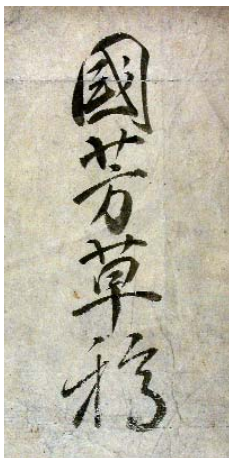 國芳草稿